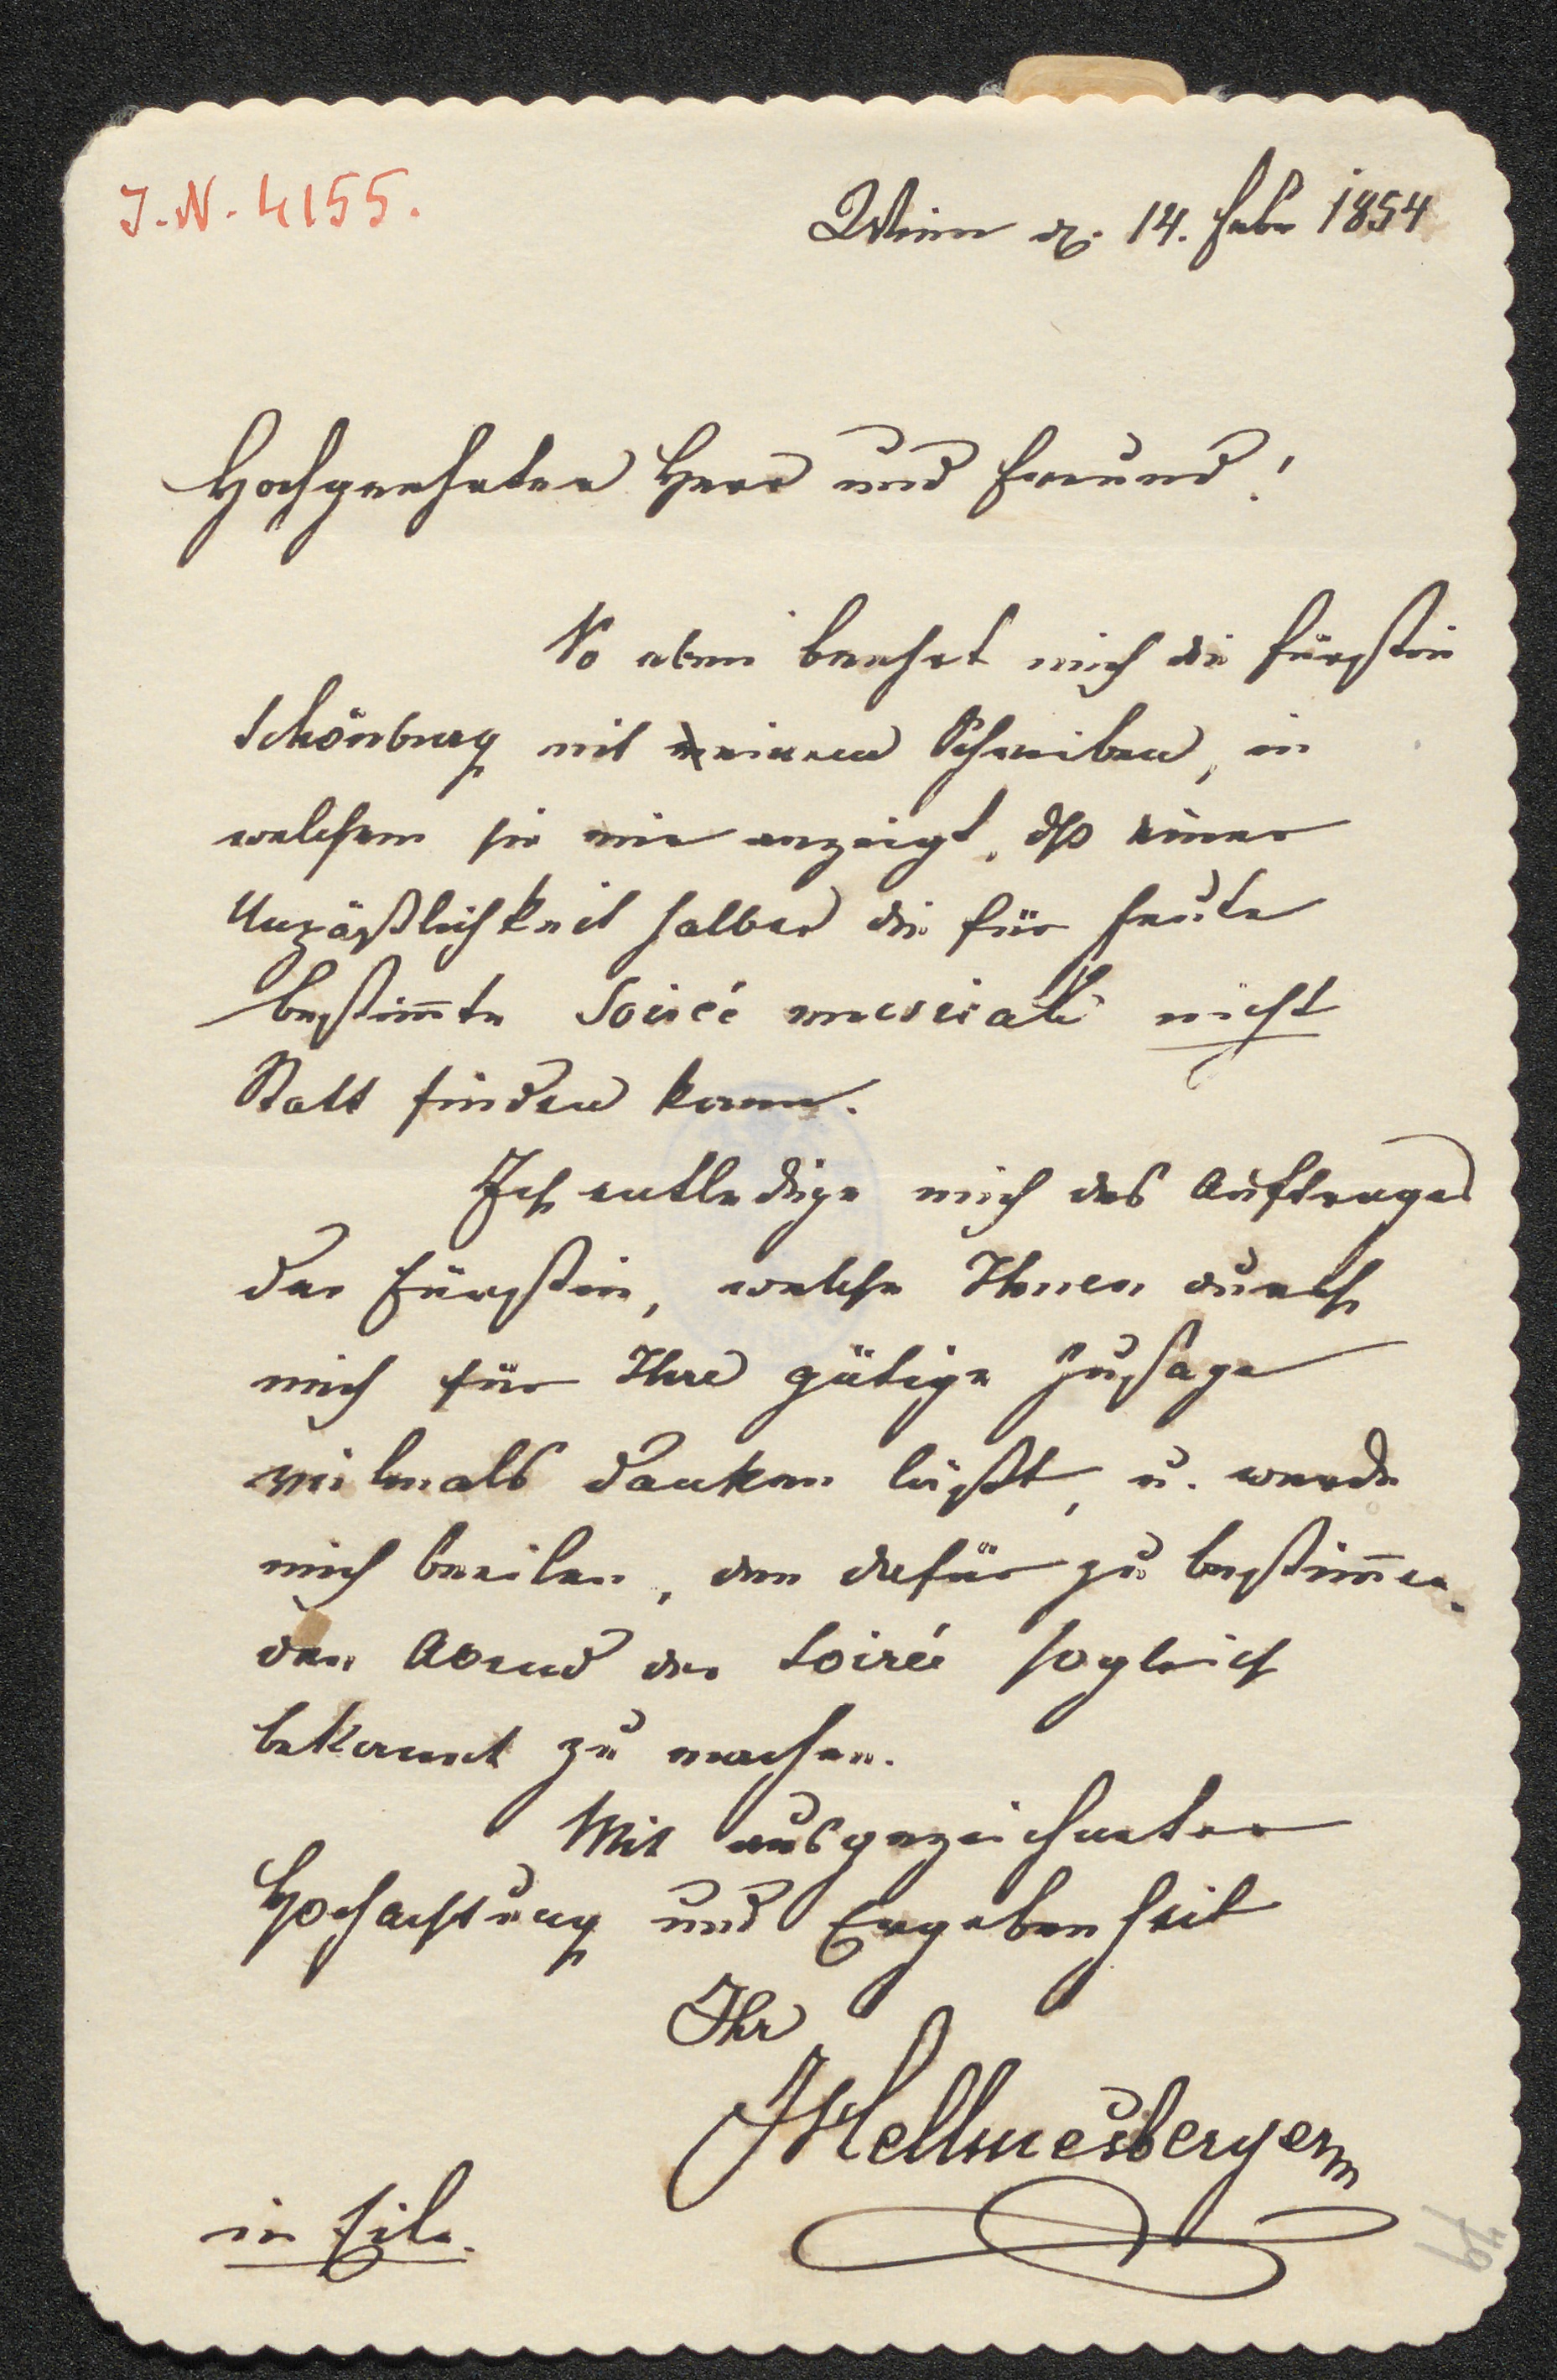 J.N. 4155.
Wien d. 14. Febr 1854
Hochgeehrter Herr und Freund!
So eben beehrt mich die Fürstin
Schönburg mit einem Schreiben, in
welchem sie mir anzeigt, dß einer
Unpäßlichkeit halber die für heute
bestim̅te Soireé musicale nicht
Statt finden kann.
Ich entledige mich des Auftrages
der Fürstin, welche Ihnen durch
mich für Ihre gütige Zusage
vielmals danken läßt, u. werde
mich beeilen, den dafür zu bestim̅en-
den Abend der Soireé sogleich
bekannt zu machen.
Mit ausgezeichneter
Hochachtung und Ergebenheit
Ihr
JHellmesberger
in Eile.